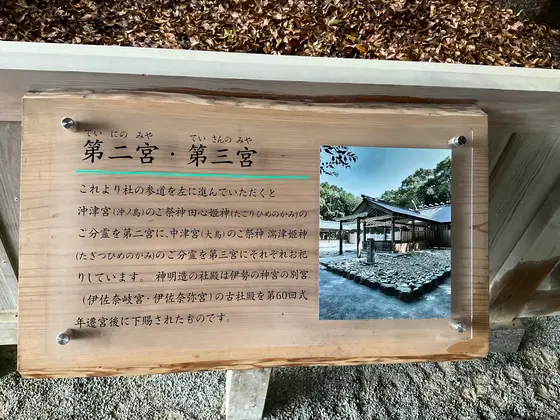 ていにのみや ていさんのみや
第二宮・第三宮
これより社の参道を左に進んでいただくと
沖津宮(沖ノ島)のご祭神田心姫神(たごりひめのかみ)の
ご分霊を第二宮に、中津宮(大島)のご祭神 湍津姫神
(たぎつひめのかみ)のご分霊を第三宮にそれぞれお祀
りしています。 神明造の社殿は伊勢の神宮の別宮
(伊佐奈岐宮・伊佐奈弥宮)の古社殿を第60回式
年遷宮後に下賜されたものです。